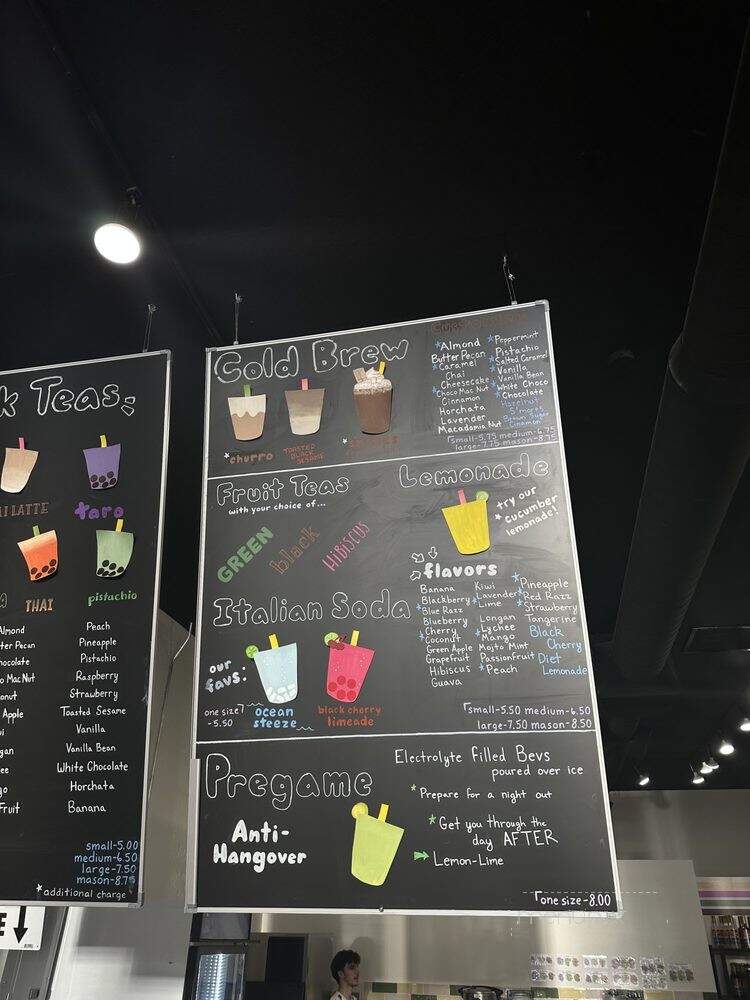 k Teas:
AI LATTE
taro
THAI
pistachio
Almond
ter Pecan
ocolate
o Mac Nut
onut
Apple
wi
gan
ee
go
Fruit
Peach
Pineapple
Pistachio
Raspberry
Strawberry
Toasted Sesame
Vanilla
Vanilla Bean
White Chocolate
Horchata
Banana
small-5.00
medium-6.50
large-7.50
mason-8.75
*additional charge
E
Cold Brew
*churro
TOASTED
BLACK
SESAME
*Almond
Butter Pecan
*Caramel
Chai
Cheesecake
*Choco Mac Nut
Cinnamon
Horchata
Lavender
Macadamia Nut
*Peppermint
Pistachio
*Salted Caramel
*Vanilla
Vanilla Bean
*White Choco
*Chocolate
Hazelnut
S'mores
Brown Sugar
Cinnamon
small-5.75 medium-6.75
large-7.75 mason-8.75
Fruit Teas
with your choice of...
GREEN
black
HIBISCUS
Lemonade
try our
*cucumber
lemonade!
flavors
Banana
Blackberry
*Blue Razz
Blueberry
Cherry
*Coconut
Green Apple
Grapefruit
Hibiscus
Guava
Kiwi
*Lavender
*Lime
Longan
Lychee
*Mango
Mojito Mint
Passionfruit
*Peach
*Pineapple
*Red Razz
*Strawberry
Tangerine
Black
Cherry
Diet
Lemonade
small-5.50 medium-6.50
large-7.50 mason-8.50
Italian Soda
our
favs:
one size
-5.50
ocean
steeze
black cherry
limeade
Pregame
Anti-
Hangover
Electrolyte filled Bevs
poured over ice
*Prepare for a night out
*Get you through the
day AFTER
Lemon-Lime
one size-8.00